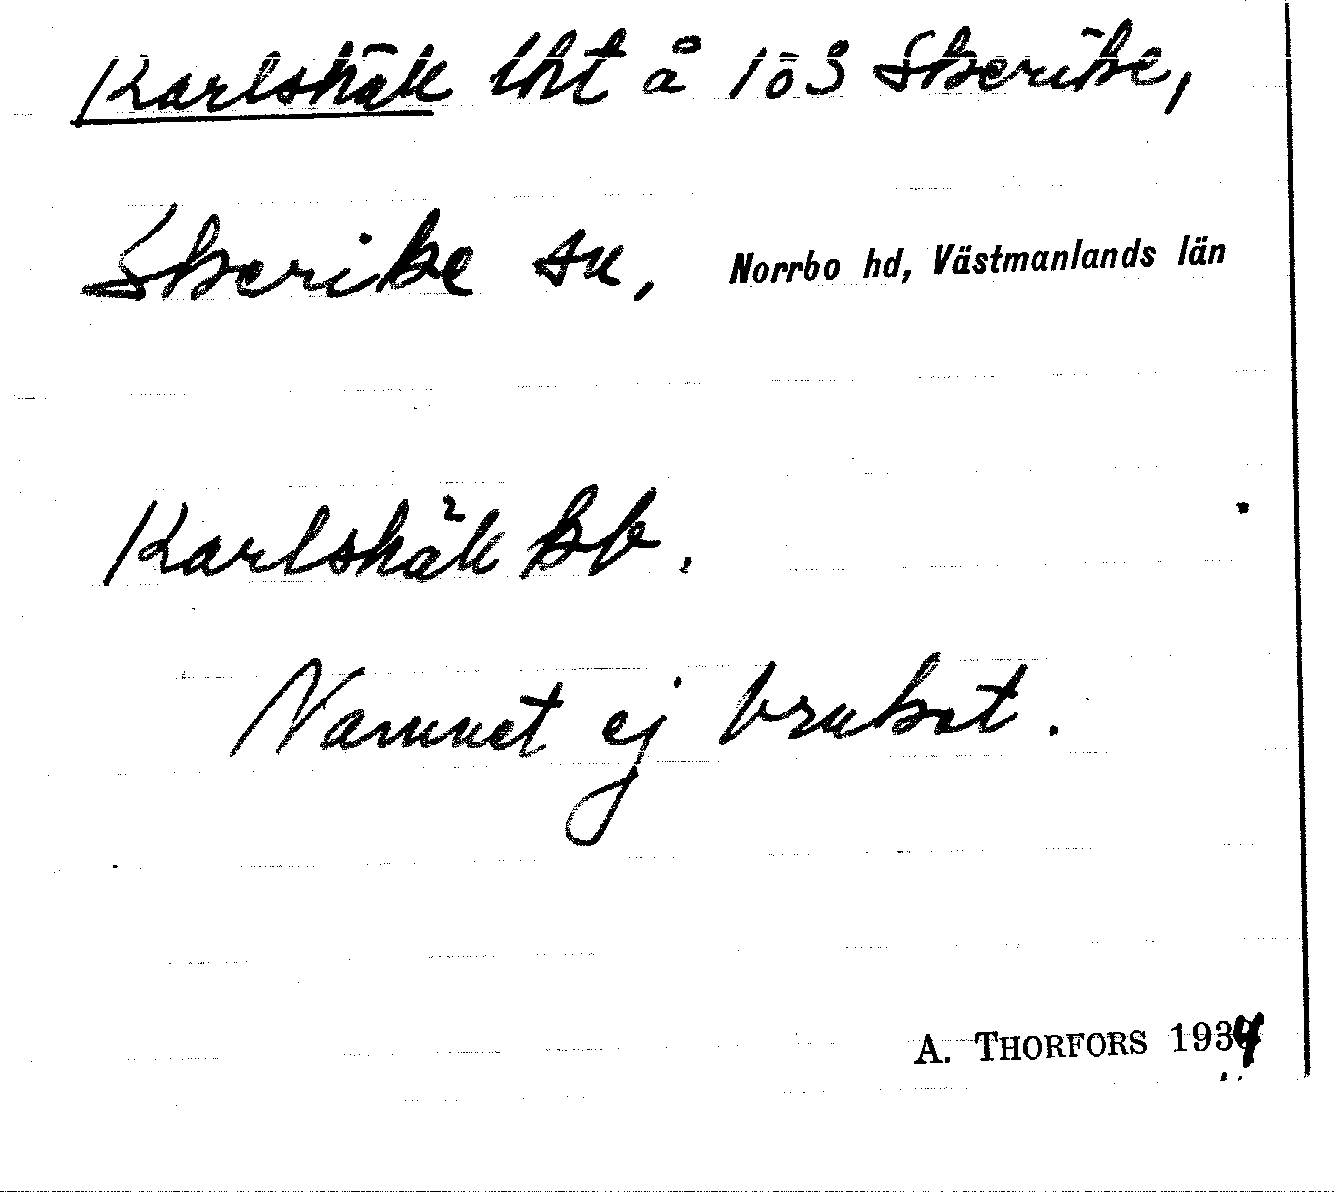 Karlshäll lht å 1ö3 Skerike,
Skerike sn, Norrbo hd, Västmanlands län
Karlshäll kb.
Namnet ej brukat.
A. THORFORS 1934